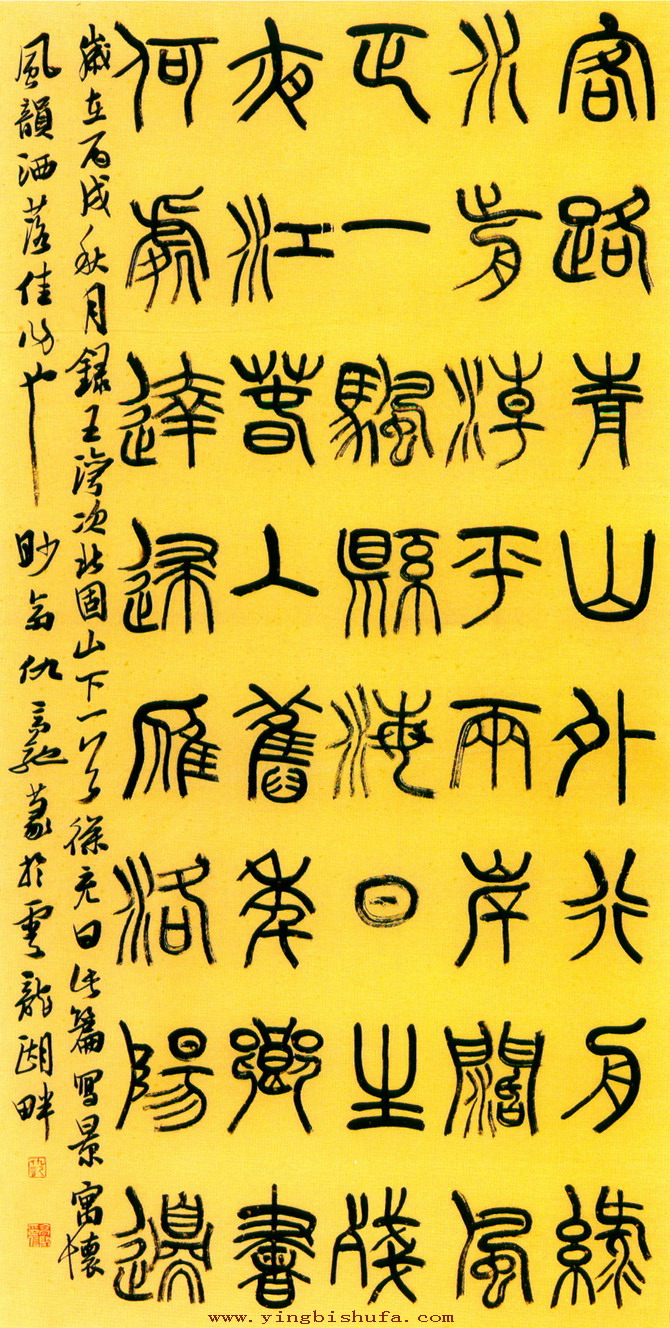 客路青山外行舟綠
水前潮平兩岸闊風
正一颿懸海日生殘
夜江春入舊年鄉書
何處達歸雁洛陽邊
歲在丙戌秋月錄王灣次北固山下一首徐充曰此篇寫景寓懷
風韻洒落佳作也 眇翁仇高馳篆於雲龍湖畔
www.yingbishufa.com